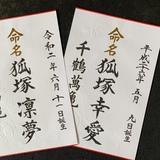 平成二十六年五月九日誕生
命名
狐塚幸愛
千鶴萬亀
令和二年六月十一日誕生
命名
狐塚凛夢